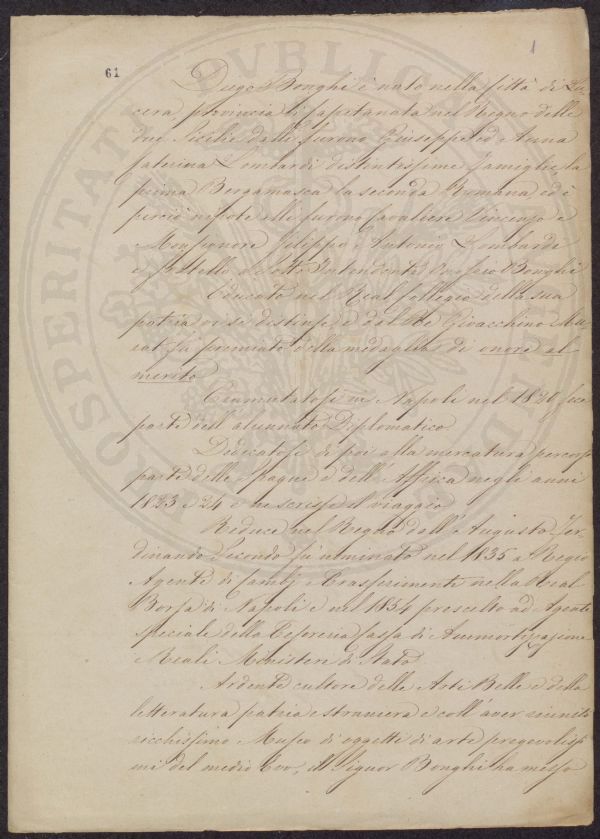 61
1
Diego Bonghi è nato nella Città di Lu-
cera provincia di Capitanata nel Regno delle
due Sicilie dalli furono Giuseppe ed Anna
Caterina Lombardi distintissime famiglie, la
prima Bergamasca la seconda Romana ed è
perciò nipote alli furono Cavaliere Vincenzo e
Monsignore Filippo e Antonio Lombardi
e fratello al Sotto Intendente Bonghi
Educato nel Real Collegio della sua
patria vi si distinse e dal Re Gioacchino Mu-
rat fù premiato della medaglia di onore al
merito
Tramutatosi in Napoli nel 1820 fece
parte dell'alunnato Diplomatico.
Dedicatosi di poi alla mercatura percorse
parte delle Spagne e dell'Affrica negli anni
1823 e 24 e ne scrisse il viaggio
Reduce nel Regno dall'Augusto Fer-
dinando Secondo fù nominato nel 1835 a Regio
Agente di Cambj e Trasferimente nella Real
Borsa di Napoli e nel 1854 prescelto ad Agente
speciale della Tesoreria Cassa di Ammortizazione
e Reali Ministere di Stato
Ardente cultore delle Arti Belle e della
letteratura patria e straniera e coll'aver riunito
ricchissimo Museo di oggetti di arte pregevolissi
mi del medio Evo, il Signor Bonghi ha messo
PROSPERITATI PVBLICAE AVGENDAE